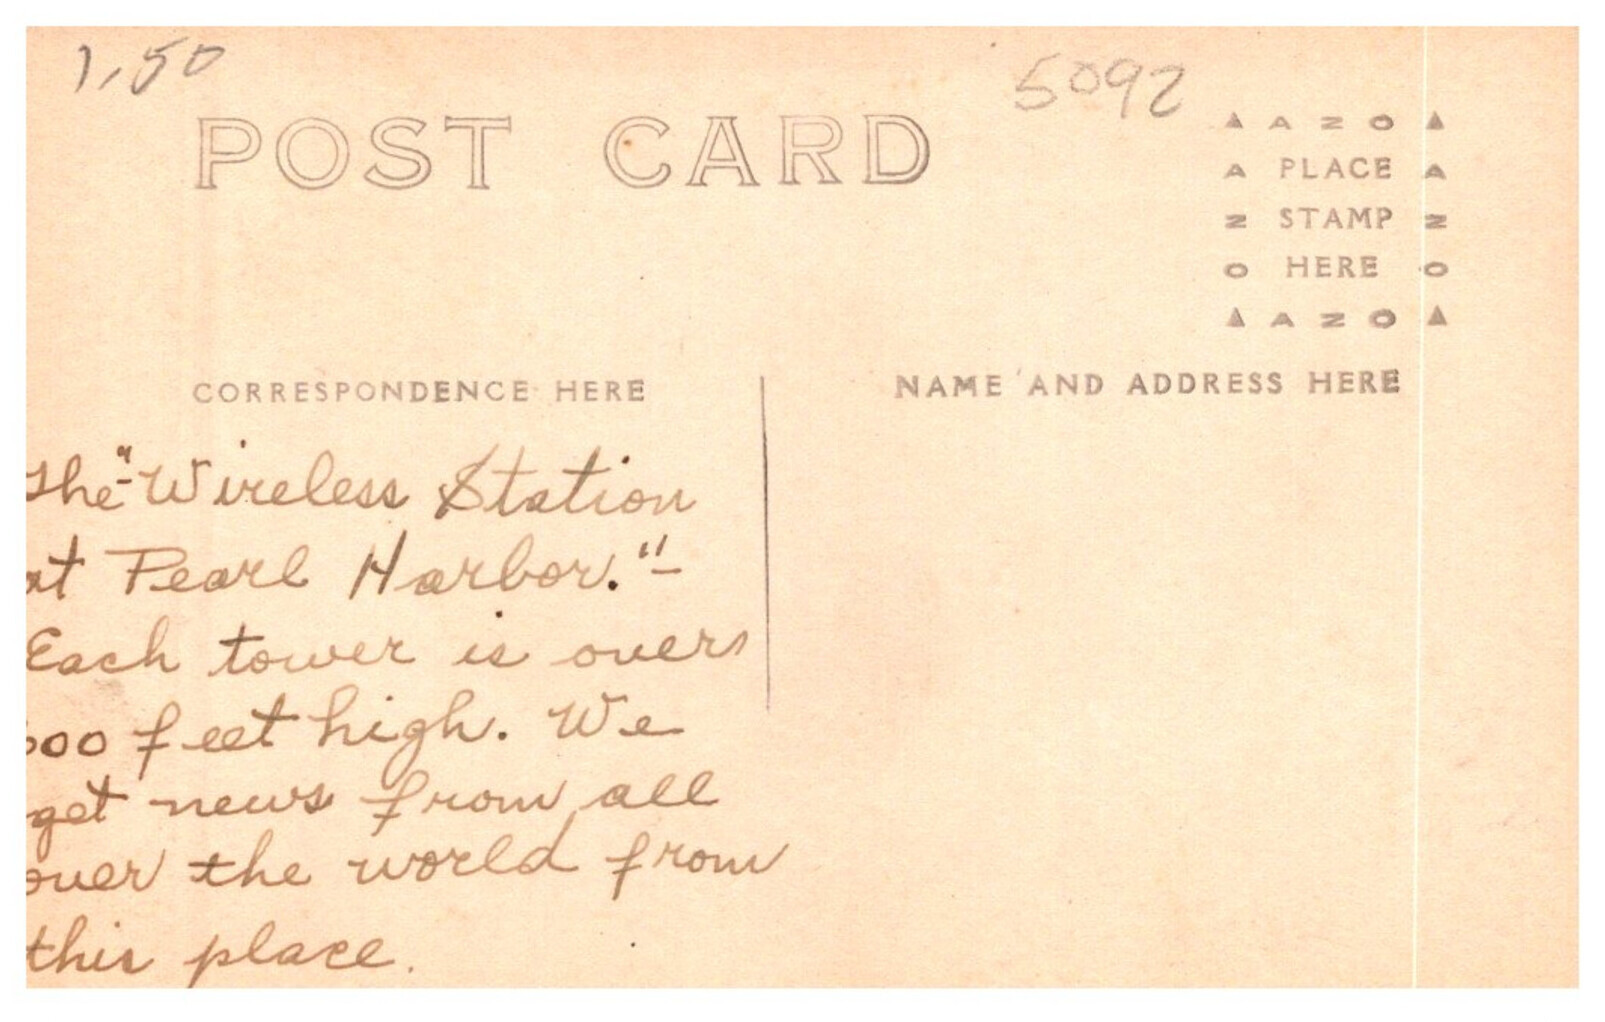 1.50
5092
POST CARD
▲ A Z O ▲
A PLACE A
Z STAMP Z
O HERE O
▲ A Z O ▲
CORRESPONDENCE HERE
NAME AND ADDRESS HERE
The "Wireless Station
at Pearl Harbor." –
Each tower is over
00 feet high. We
get news from all
over the world from
this place.